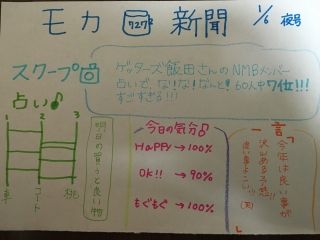 モカ 新聞 1/6 夜号
スクープ
ゲッターズ飯田さんのNMBメンバー
占いで、な!な!なんと!60人中7位!!!
すごすぎる!!!
占い♪
1 2 3
車 コート 桃
明日の買うと良い物
今日の気分♪
HAPPY→100%
OK!!→90%
もぐもぐ→100%
一言
今年は良い事が
沢山あるう予想!!